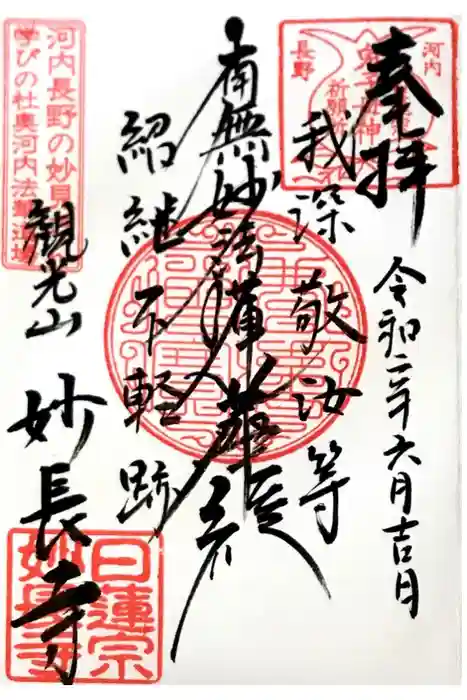 奉拝
河内
長野
鬼子母神
祈願所
令和二年六月吉日
我深敬汝等
南無妙法蓮華経
紹継不軽跡
河内長野の妙見
学びの社奥河内法華道場
観光山
妙長寺
日蓮宗
妙長寺